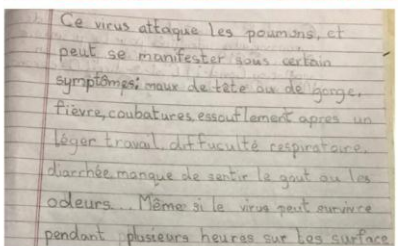 Ce virus attaque les poumons, et
peut se manifester sous certain
symptômes: maux de tête ou de gorge,
fièvre, coubatures, essouflement apres un
léger travail, diffuculté respiratoire,
diarrhée, manque de sentir le gout ou les
odeurs... Même si le virus peut survivre
pendant plusieurs heures sur les surface